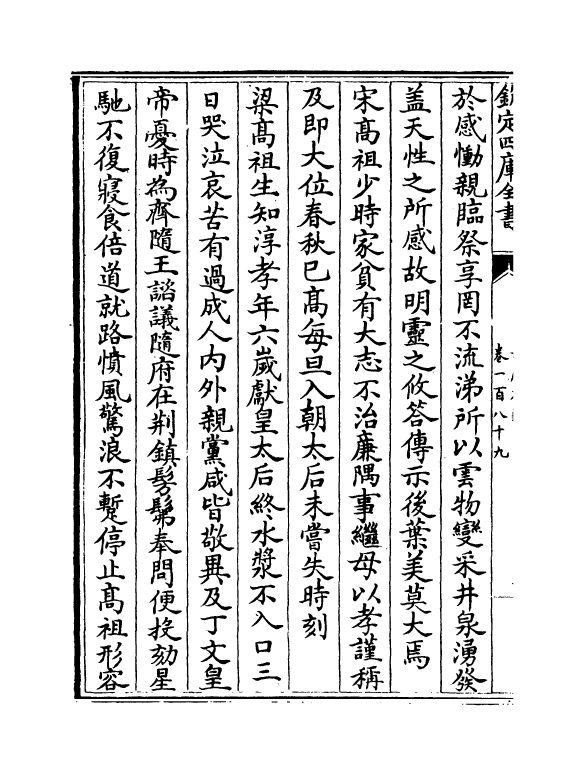 欽定四庫全書
卷一百八十九
於感慟親臨祭享罔不流涕所以雲物變采井泉湧發
盖天性之所感故明靈之攸答傳示後葉美莫大焉
宋髙祖少時家貧有大志不治廉隅事繼母以孝謹稱
及即大位春秋已髙每旦入朝太后未嘗失時刻
梁髙祖生知淳孝年六嵗獻皇太后終水漿不入口三
日哭泣哀苦有過成人内外親黨咸皆敬異及丁文皇
帝憂時為齊隨王諮議隨府在荆鎮髣髴奉問便投劾星
馳不復寢食倍道就路憤風驚浪不蹔停止髙祖形容